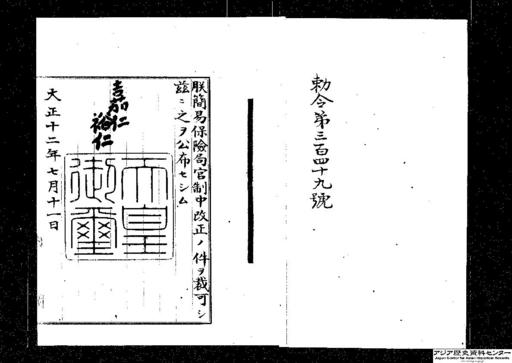 勅令第三百四十九號
朕簡易保險局官制中改正ノ件ヲ裁可シ
玆ニ之ヲ公布セシム
嘉仁
裕仁
天皇御璽
大正十二年七月十一日
アジア歴史資料センター
Japan Center for Asian Historical Records